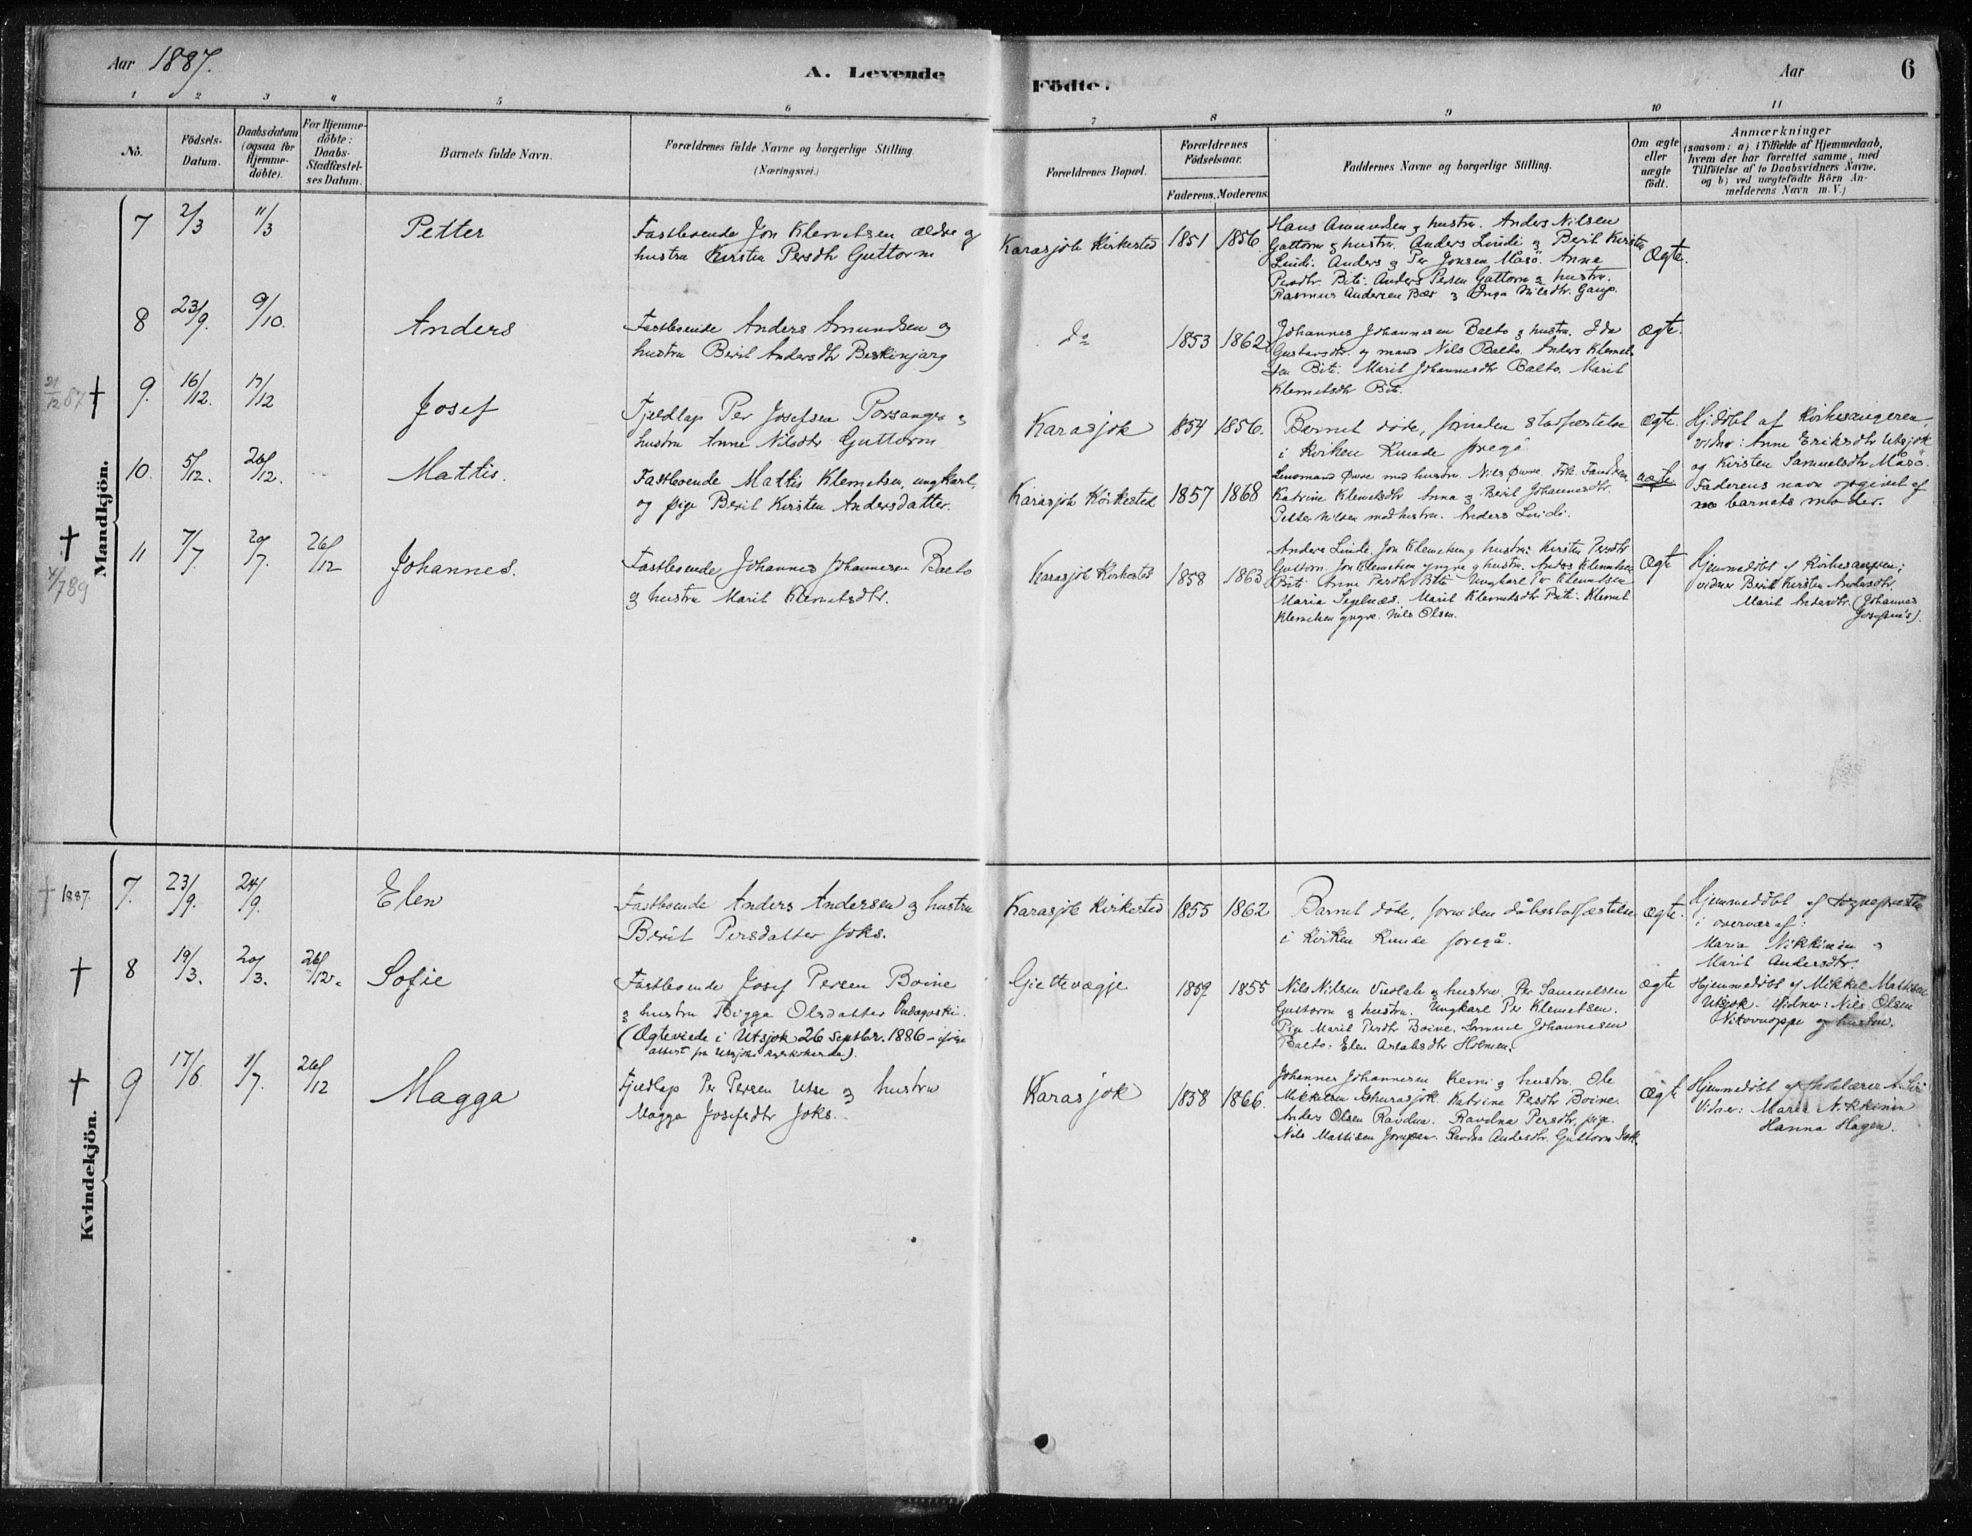 Aar 1887.
A. Levende
Födte.
Aar
6
1 2 3 4 5 6 7 8 9 10 11
No.
Födsels-
Datum.
Daabsdatum
(ogsaa for
Hjemme-
döbte).
For Hjemme-
döbte:
Daabs-
Stadfæstel-
ses Datum.
Barnets fulde Navn.
Forældrenes fulde Navne og borgerlige Stilling.
(Næringsvei.)
Forældrenes Bopæl.
Forældrenes
Födselsaar.
Faderens. Moderens.
Faddernes Navne og borgerlige Stilling.
Om ægte
eller
uægte
födt.
Anmærkninger
(saasom: a) i Tilfælde af Hjemmedaab,
hvem der har forrettet samme, med
Tilföielse af to Daabsvidners Navne,
og b) ved uægtefödte Börn An-
melderens Navn m. V.)
Mandkjön.
7 2/3 11/3 Petter
Fastboende Jon Klemetsen ældre og
hustru Kirsten Persdtr Guttorm
Karasjok Kirkested 1851 1856.
Hans Amundsen og hustru. Anders Nilsen
Guttorm og hustru. Anders Lindi og Berit Kirsten
Lindi. Anders og Per Jonsen Måsö. Anne
Persdtr. Biti. Anders Persen Guttorm og hustru.
Rasmus Andersen Bær og Inga Nilsdtr. Gaup.
Ægte.
8 23/9. 9/10. Anders
Fastboende Anders Amundsen og
hustru Berit Andersdtr Beskinjarg
do 1853 1862
Johannes Johannesen Balto og hustru. Ida
Gustavsdtr. og mand Nils Balto. Anders Klemet-
sen Biti. Marit Johannesdtr Balto. Marit
Klemetsdtr Biti.
Ægte.
21/12 87 † 9. 16/12. 17/12 Josef
Fjeldlap Per Josefsen Porsanger og
hustru Anne Nilsdtr Guttorm
Karasjok 1854 1856.
Barnet döde, förinden stafæstelse
i Kirken Kunde foregå
Ægte.
Hj.döbt af Kirkesangeren.
vidner: Anne Eriksdtr Utsjok
og Kirsten Samuelsdtr Måsö.
10. 5/12. 26/12. Mattis.
Fastboende Mattis Klemetsen, ungkarl,
og pige Berit Kirsten Andersdatter.
Karasjok Kirkested 1857 1868
Lensmand Övre med hustru. Nils Övre. Frk.
Katrine Klemetsdtr Anna og Berit Johannesdtr.
Petter Nilsen med hustru. Anders Lindi.
uægte
Faderens navn opgivet af
barnets moder.
† 4/7 89 11 7/7. 20/7. 26/12 Johannes.
Fastboende Johannes Johannesen Balto
og hustru Marit Klemetsdtr.
Karasjok Kirkested 1858 1863
Anders Lindi. Jon Klemetsen og hustru: Kirsten Persdtr
Guttorm. Jon Klemetsen yngre og hustru. Anders Klemetsen
Biti. Anne Persdtr Biti. Ungkarl Per Klemetsen
Maria Segelnæs. Marit Klemetsdtr Biti. Klemet
Klemetsen yngre. Nils Olsen.
Ægte
Hjemmedöbt af Kirkesangeren;
vidner Berit Kirsten Andersdtr.
Marit Andersdtr. (Johannes
Josefsen's).
Kvindekjön.
† 1887. 7. 23/9. 24/9. Elen
Fastboende Anders Andersen og hustru
Berit Persdatter Joks.
Karasjok Kirkested 1855 1862
Barnet döde, förinden dåbsstafæstelse
i Kirken Kunde foregå.
Ægte.
Hjemmedöbt af sognepresten
i overvær af:
Maria Nikkinen og
Marit Andersdtr.
† 8 19/3. 20/3. 26/12. Sofie
Fastboende Josef Persen Boine
og hustru Bigga Olsdatter
(Ægteviede i Utsjok 26 Septbr. 1886 – ifölge
attest fra Utsjoks kyrkoherde).
Giettevægje 1859 1855
Nils Nilsen og hustru. Per Samuelsen
Guttorm og hustru. Ungkarl Per Klemetsen.
Pige Marit Persdtr Boine. Samuel Johannesen
Balto. Elen
Ægte
Hjemmedöbt af Mikkel Mattisen
Utsjok. Vidner: Nils Olsen
Nitovuoppe og hustru.
† 9 17/6 1/7. 26/12 Magga
Fjeldlap Per Persen Utse og hustru
Magga Josefsdtr Joks.
Karasjok 1858 1866.
Johannes Johannesen Kemi og hustru. Ole
Mikkelsen Katrine Persdtr Boine.
Anders Olsen Ravdna. Ravdna Persdtr, pige.
Nils Mattisen Ravdna Andersdtr. Guttorm
Ægte
Hjemmedöbt af Skolelærer
Vidner: Maria Nikkinen
Hanna Hagen.